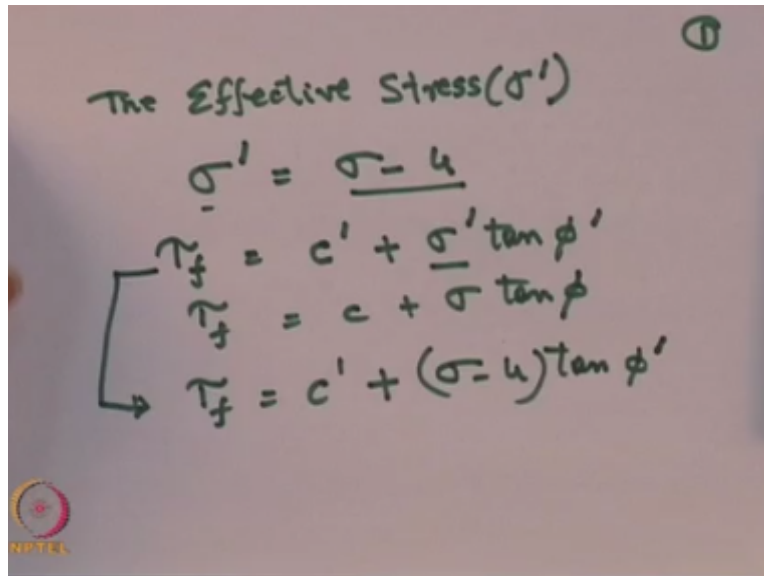 ①
The Effective Stress(σ')
σ' = σ - u
τf = c' + σ' tan φ'
τf = c + σ tan φ
τf = c' + (σ - u) tan φ'
NPTEL